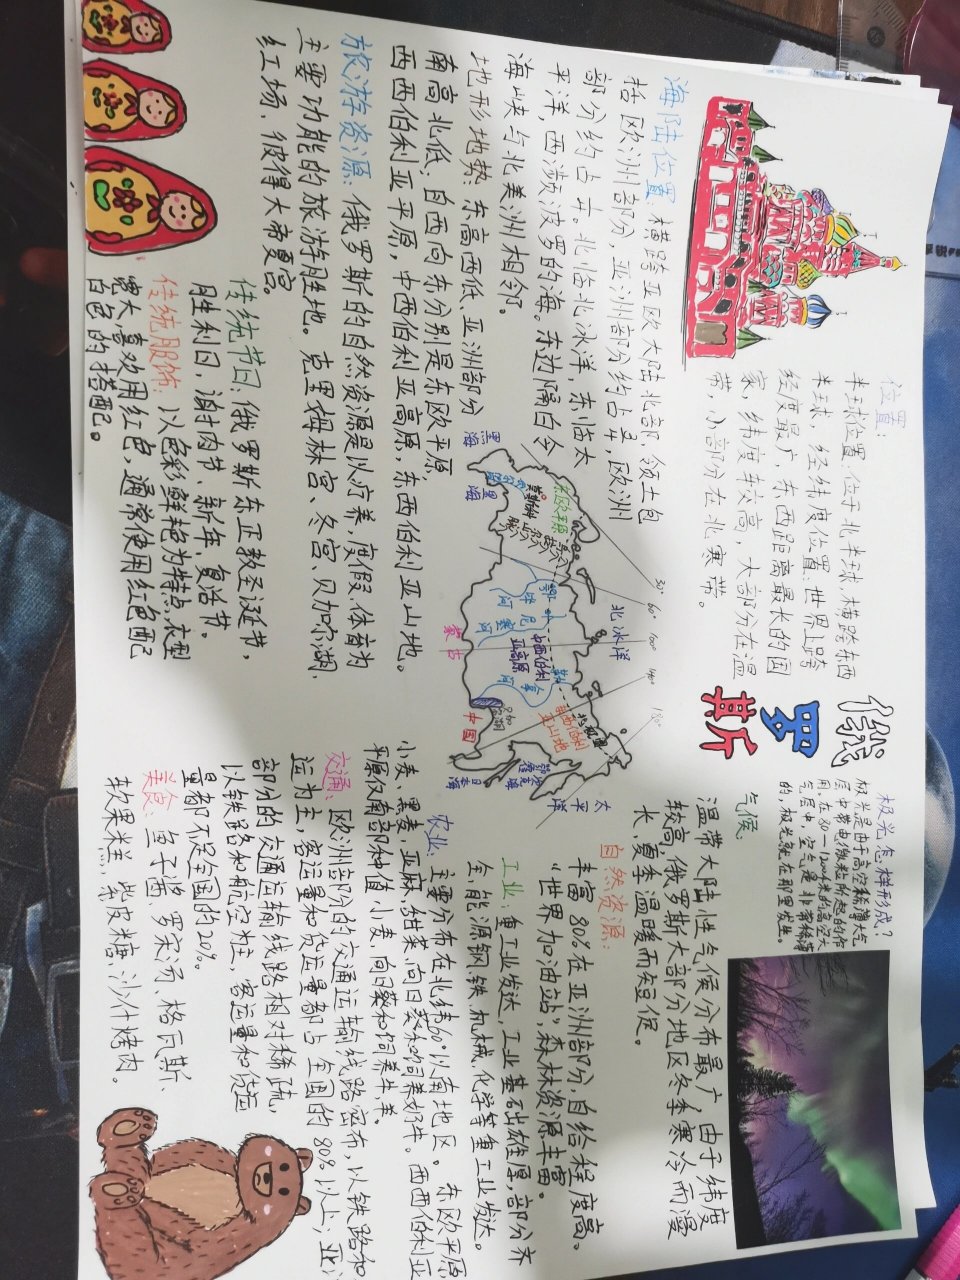 俄罗斯
位置：
半球位置：位于北半球，横跨东西
半球，经纬度位置：世界上跨
经度最广，东西距离最长的国
家，纬度较高，大部分在温
带，小部分在北寒带。
海陆位置：横跨亚欧大陆北部，领土包
括欧洲部分，亚洲部分约占
部分约占 北临北冰洋，东临太
平洋，西濒波罗的海。东边隔白令
海峡与北美洲相邻。
地形地势：东高西低，亚洲部分
南高北低，自西向东分别是东欧平原，
西西伯利亚平原，中西伯利亚高原，东西伯利亚山地。
旅游资源：俄罗斯的自然资源是以疗养，度假，体育为
主要功能的旅游胜地。克里姆林宫、冬宫、贝加尔湖、
红场、彼得大帝夏宫。
传统节日：俄罗斯东正教圣诞节，
胜利日，谢肉节、新年，复活节。
传统服饰：以色彩鲜艳为特点，衣型
宽大，喜欢用红色，通常使用红色配
白色的搭配。
30°
60°
100°
140°
北冰洋
东欧平原
莫斯科
黑海
里海
鄂毕河
叶尼塞河
中西伯利亚高原
勒拿河
东西伯利亚山地
贝加尔湖
蒙古
中国
日本海
太平洋
极光怎样形成？
极光是由于高空稀薄大气
层中带电微粒所起的作
用，在80—1200米的高空大
气层中，空气是非常稀薄
的，极光就在那里发生。
气候：
温带大陆性气候分布最广，由于纬度
较高，俄罗斯大部分地区冬季寒冷而漫
长，夏季温暖而短促。
自然资源：
丰富 80%在亚洲部分，自给程度高。
“世界加油站”，森林资源丰富。
工业：重工业发达，工业基础雄厚，部分齐
全，能源钢铁，机械，化学等重工业发达。
农业：主要分布在北纬60°以南地区。东欧平原
小麦、黑麦，亚麻，甜菜，向日葵和饲养奶牛。西西伯利亚
平原仅南部种植 小麦，向日葵和饲养牛，羊。
交通：欧洲部分的交通运输线路密布，以铁路和
运为主，客运量和货运量都占全国的80%以上，亚
部分的交通运输线路相对稀疏，
以铁路和航空为主，客运量和货运
量都不足全国的20%。
美食：鱼子酱、罗宋汤、格瓦斯、
软果糕、紫皮糖、沙什烤肉。